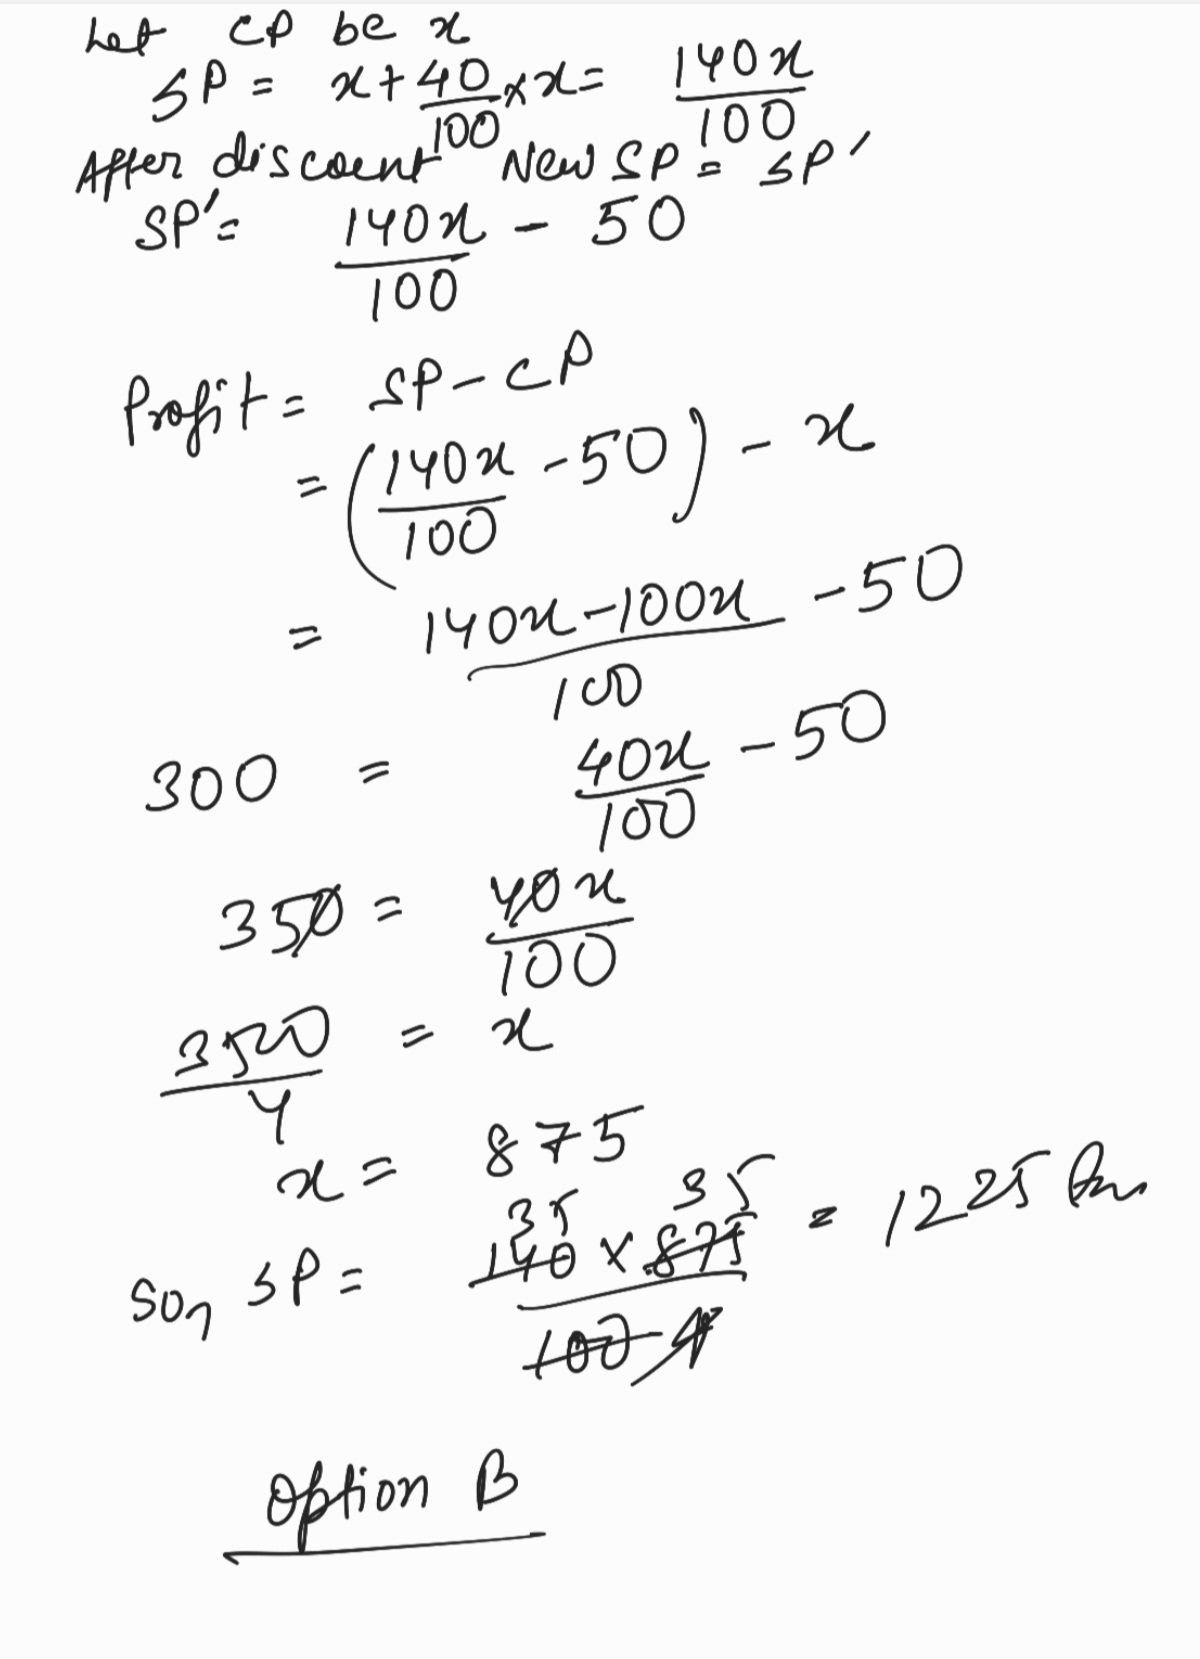 Let CP be x
SP = x + 40/100 × x = 140x/100
After discount New SP = SP'
SP' = 140x/100 - 50
Profit = SP - CP
= (140x/100 - 50) - x
= 140x - 100x/100 - 50
300 = 40x/100 - 50
350 = 40x/100
3500/4 = x
x = 875
35 35
So, SP = 140 × 875/100 4 = 1225 Ans
Option B